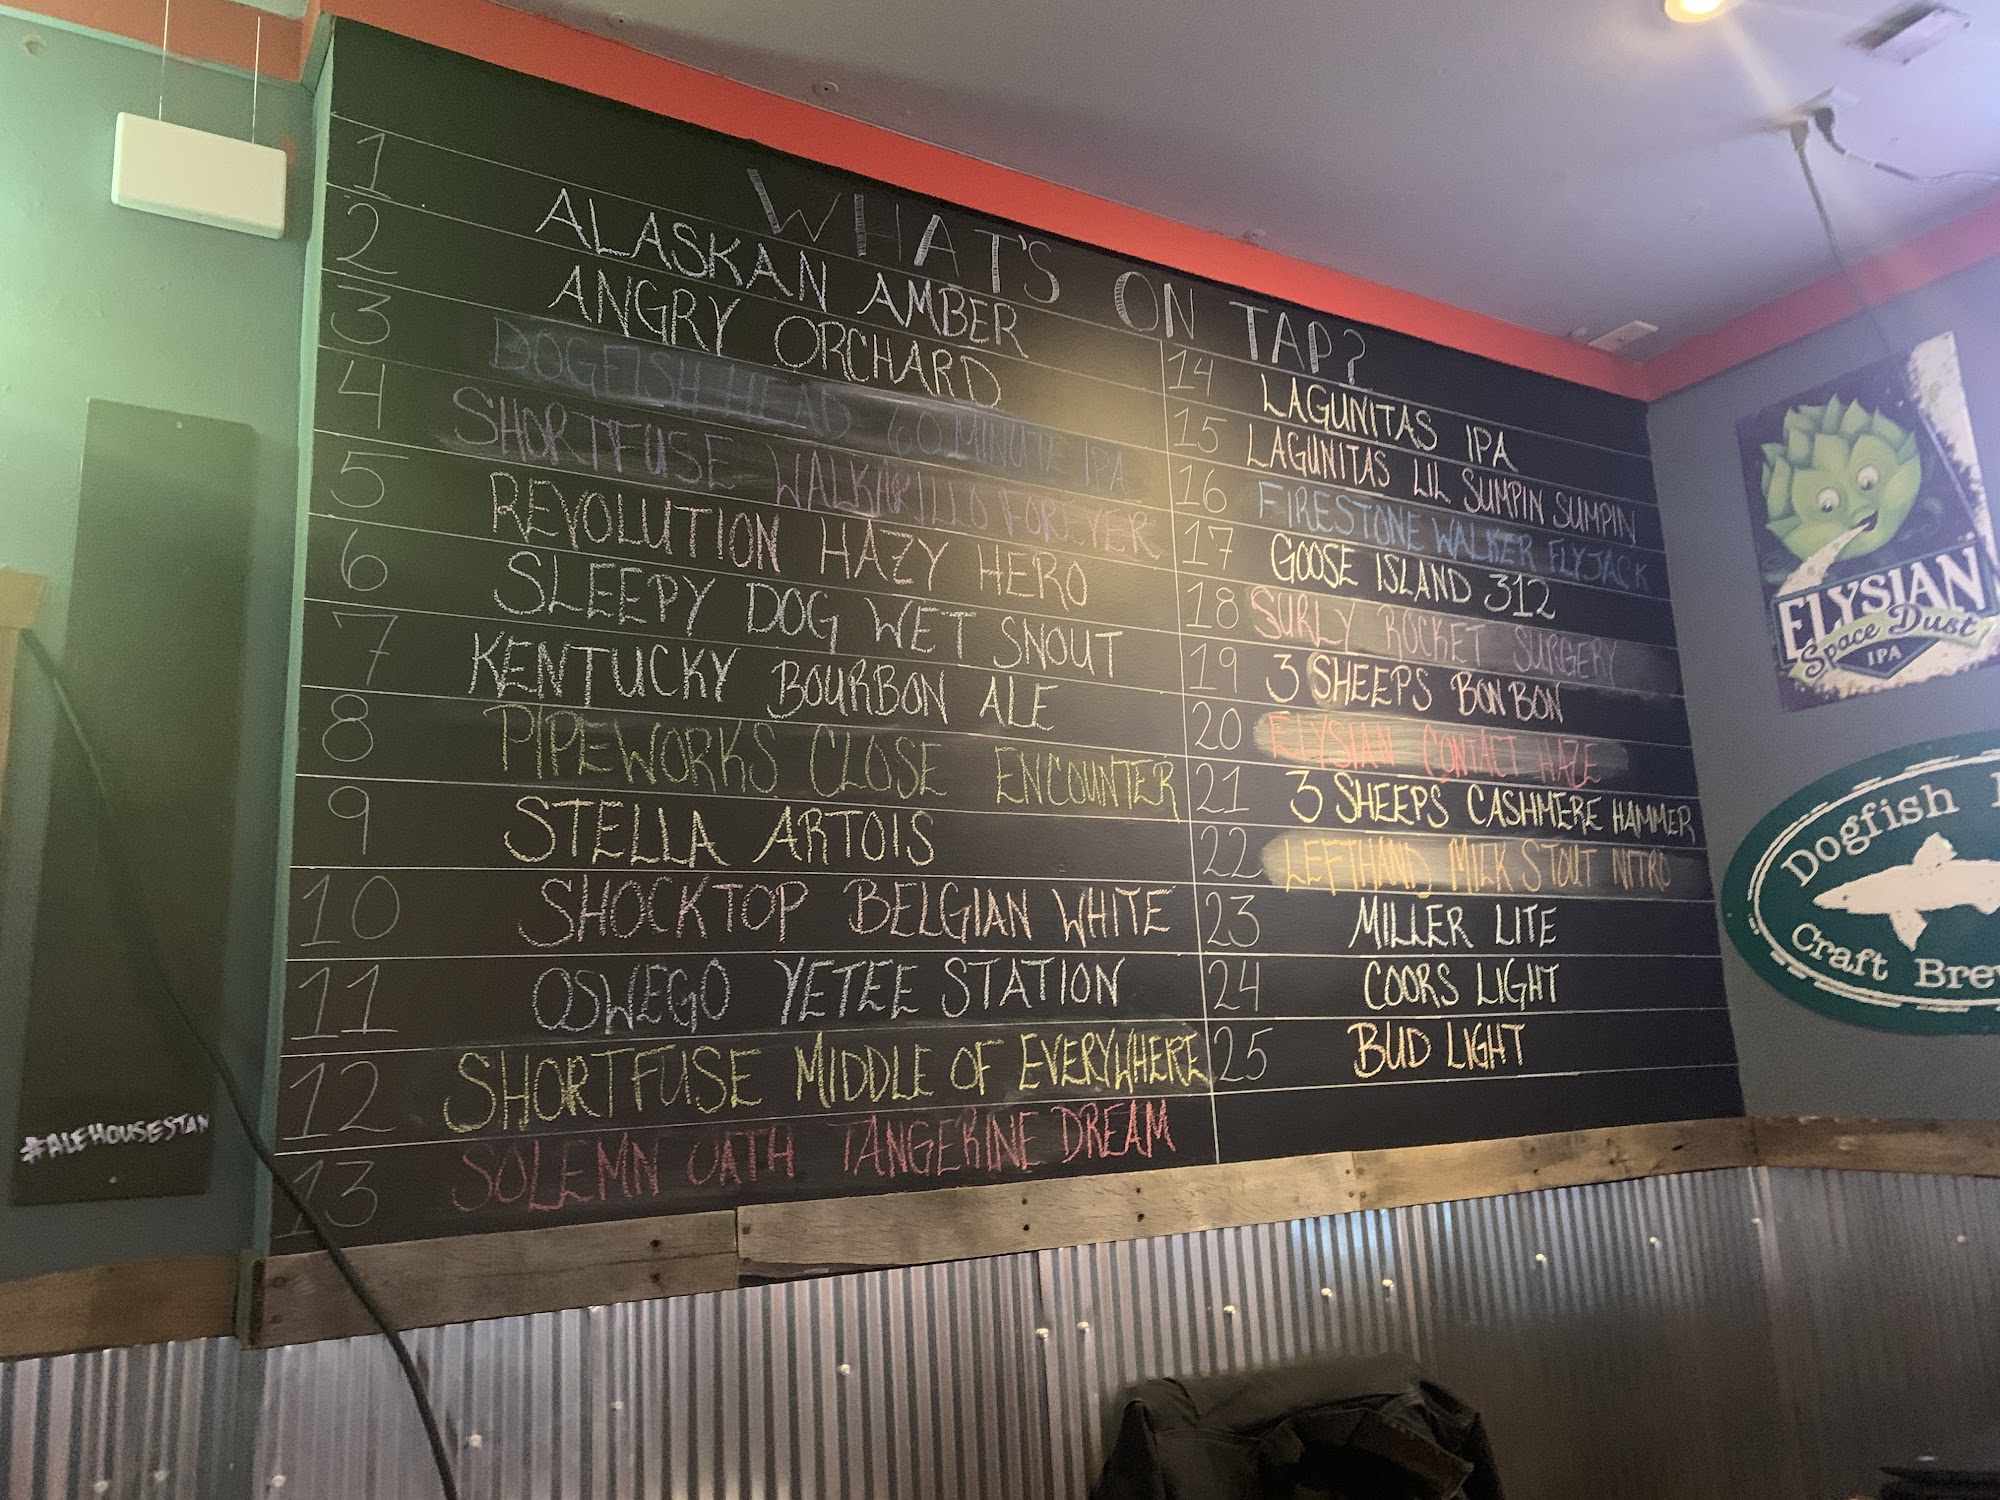 WHAT'S ON TAP?
1 ALASKAN AMBER
2 ANGRY ORCHARD
3 DOGFISH HEAD 60 MINUTE IPA
4 SHORTFUSE FOREVER
5 REVOLUTION HAZY HERO
6 SLEEPY DOG WET SNOUT
7 KENTUCKY BOURBON ALE
8 PIPEWORKS CLOSE ENCOUNTER
9 STELLA ARTOIS
10 SHOCKTOP BELGIAN WHITE
11 OSWEGO YETEE STATION
12 SHORTFUSE MIDDLE OF EVERYWHERE
13 SOLEMN OATH TANGERINE DREAM
14 LAGUNITAS IPA
15 LAGUNITAS LIL SUMPIN SUMPIN
16 FIRESTONE WALKER FLYJACK
17 GOOSE ISLAND 312
18 SURLY ROCKET SURGERY
19 3 SHEEPS BON BON
20 ELYSIAN CONTACT HAZE
21 3 SHEEPS CASHMERE HAMMER
22 LEFTHAND MILK STOUT NITRO
23 MILLER LITE
24 COORS LIGHT
25 BUD LIGHT
#ALEHOUSESTAN
ELYSIAN
Space Dust
IPA
Dogfish
Craft